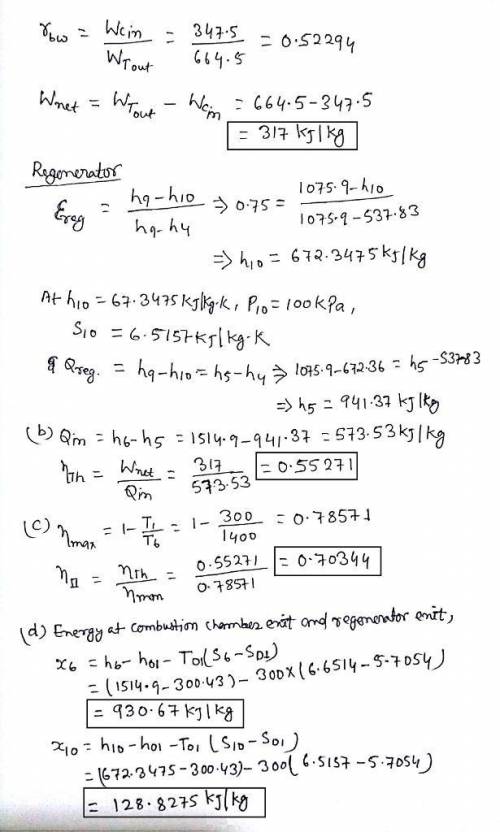 r_bw = W_Cin / W_Tout = 347.5 / 664.5 = 0.52294
W_net = W_Tout - W_Cin = 664.5-347.5
= 317 KJ/kg
Regenerator
Ɛ_reg = h9-h10 / h9-h4 ⇒ 0.75 = 1075.9-h10 / 1075.9-537.83
⇒ h10 = 672.3475 KJ/kg
At h10 = 67.3475 KJ/kg.K, P10 = 100 KPa,
S10 = 6.5157 KJ/kg.K
q Qreg. = h9-h10 = h5-h4 ⇒ 1075.9-672.36 = h5-537.83
⇒ h5 = 941.37 KJ/kg
(b) Qin = h6-h5 = 1514.9-941.37 = 573.53 KJ/kg
η_Th = W_net / Qin = 317 / 573.53 = 0.55271
(c) η_max = 1- T1/T6 = 1- 300/1400 = 0.78571
η_II = η_Th / η_max = 0.55271 / 0.78571 = 0.70344
(d) Energy at combustion chamber exit and regenerator exit,
x6 = h6-h01-T01(S6-S01)
= (1514.9-300.43)-300×(6.6514-5.7054)
= 930.67 KJ/kg
x10 = h10-h01-T01(S10-S01)
= (672.3475-300.43)-300(6.5157-5.7054)
= 128.8275 KJ/kg